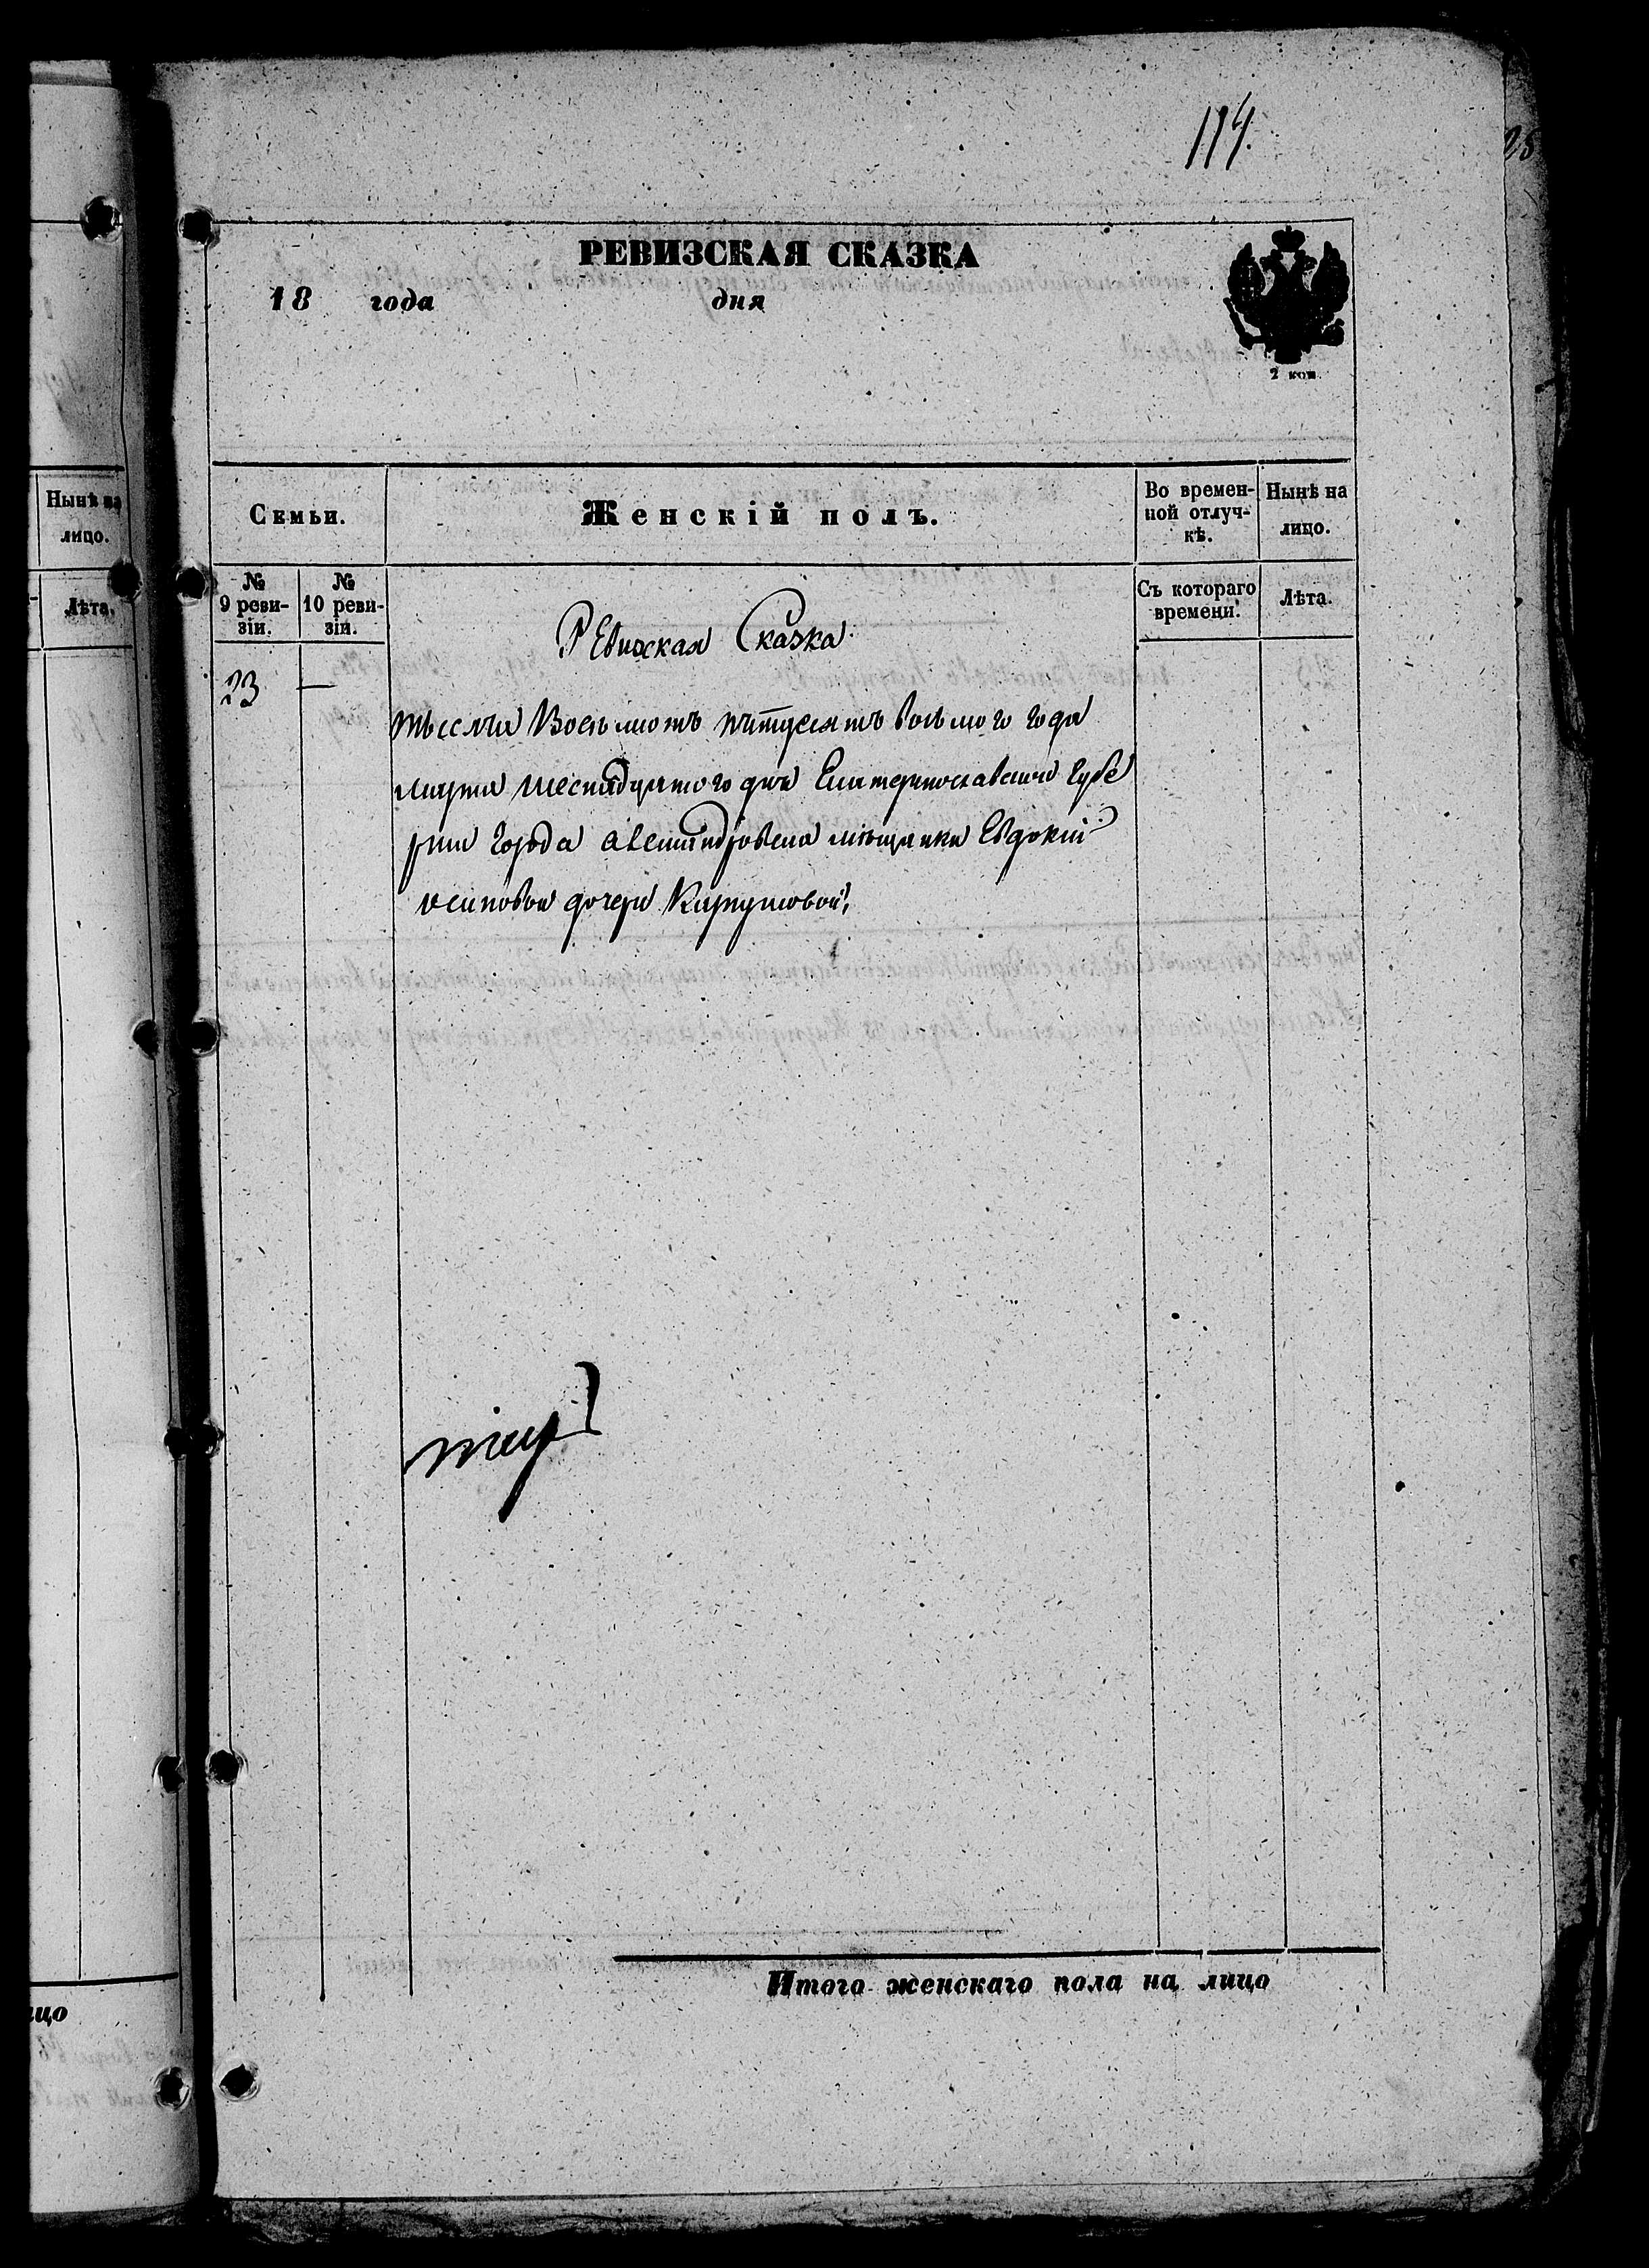 114.
РЕВИЗСКАЯ СКАЗКА
18 года дня
2 коп.
Нынѣ на
лицо.
Лѣта.
Семьи.
Женскій полъ.
Во времен-
ной отлуч-
кѣ.
Нынѣ на
лицо.
№
9 реви-
зіи.
№
10 реви-
зіи.
Съ котораго
времени.
Лѣта.
Ревиская Сказка
23 —
тыссяча Восьмиотъ пятдесятъ восьмого года
марта шеснадцатого дня Екатеринославской Губе
рніи Города александровска мѣщанки Евдокіи
осиповой дочери Карпушовой,
Итого женскаго пола на лицо
ицо